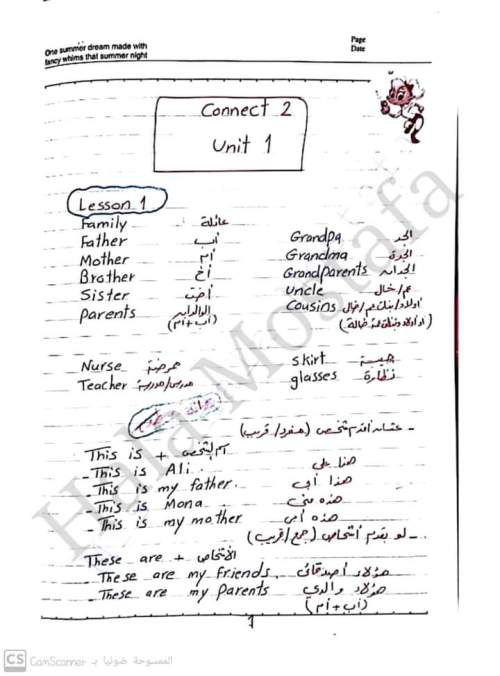 One summer dream made with
fancy whims that summer night
Page
Date
Connect 2
Unit 1
Lesson 1
Family عائلة
Father أب
Mother أم
Brother أخ
Sister أخت
parents الوالدين
(أب + أم)
Grandpa الجد
Grandma الجدة
Grandparents الجدان
Uncle عم/خال
Cousins أولاد/بنات عم/خال
Nurse ممرضة
Teacher مدرس/مدرسة
skirt جيبة
glasses نظارة
- عشان أقدم شخص (مفرد/قريب)
This is + اسم الشخص
- This is Ali. هذا علي
- This is my father. هذا أبي
- This is Mona. هذه منى
- This is my mother هذه أمي
- لو بقدم أشخاص (جمع/قريب)
These are + الأشخاص
- These are my Friends. هؤلاء أصدقائي
- These are my parents هؤلاء والدي
(أب + أم)
1
Hala Mostafa
CS CamScanner الممسوحة ضوئيا بـ